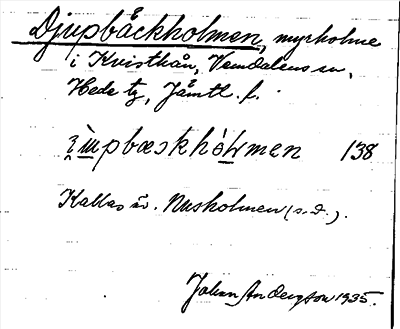 Djupbäckholmen, myrholme
i Kvisthån, Vemdalens sn,
Hede tg, Jämtl. l.
138
Kallas äv. Musholmen (s.d.).
Johan Andersson 1935.